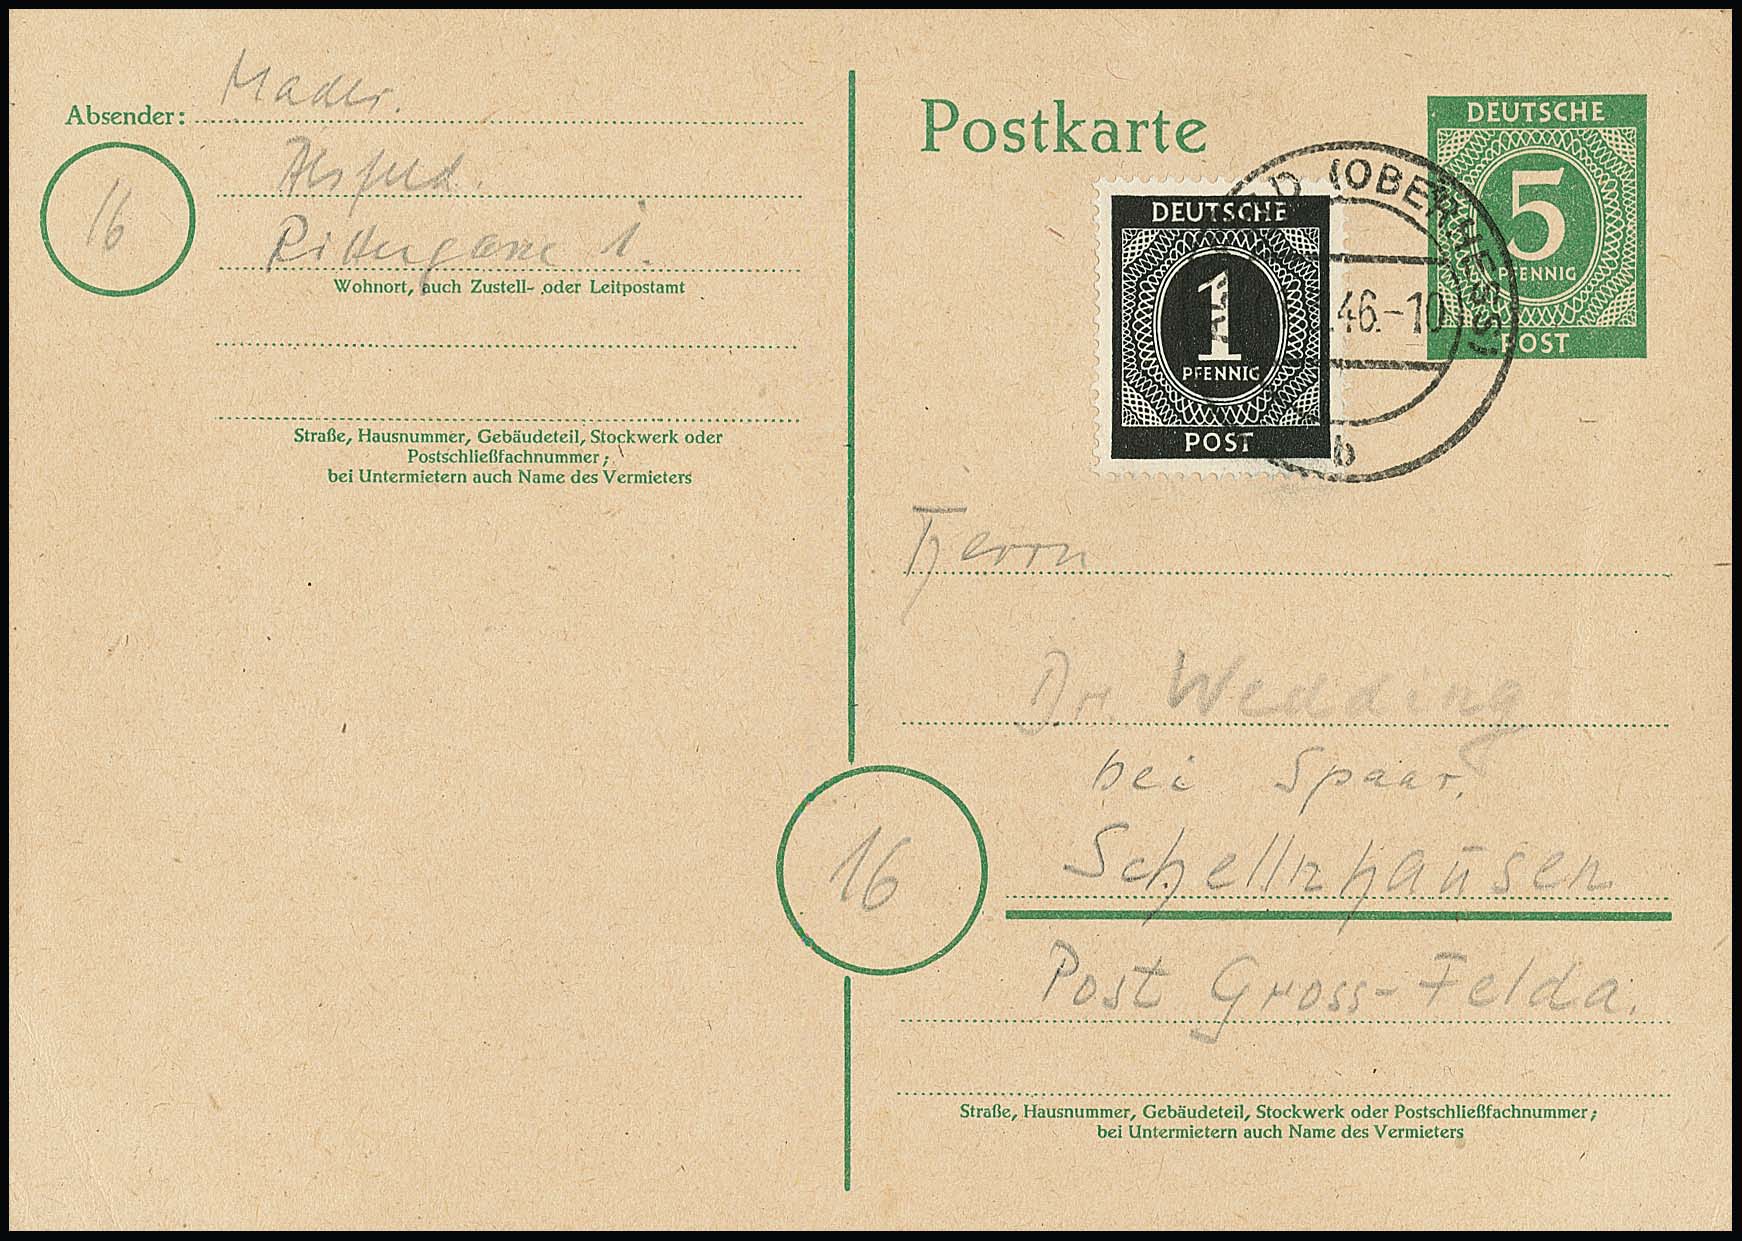 Absender: Mader.
Alsfeld.
16
Rittergasse 1.
Wohnort, auch Zustell- oder Leitpostamt
Straße, Hausnummer, Gebäudeteil, Stockwerk oder
Postschließfachnummer;
bei Untermietern auch Name des Vermieters
Postkarte
DEUTSCHE
5
PFENNIG
POST
DEUTSCHE
1
PFENNIG
POST
D (OBERHESS)
.46.-10
b
Herrn
Dr. Wedding
bei Spaar.
16
Schellnhausen
Post Gross-Felda.
Straße, Hausnummer, Gebäudeteil, Stockwerk oder Postschließfachnummer;
bei Untermietern auch Name des Vermieters